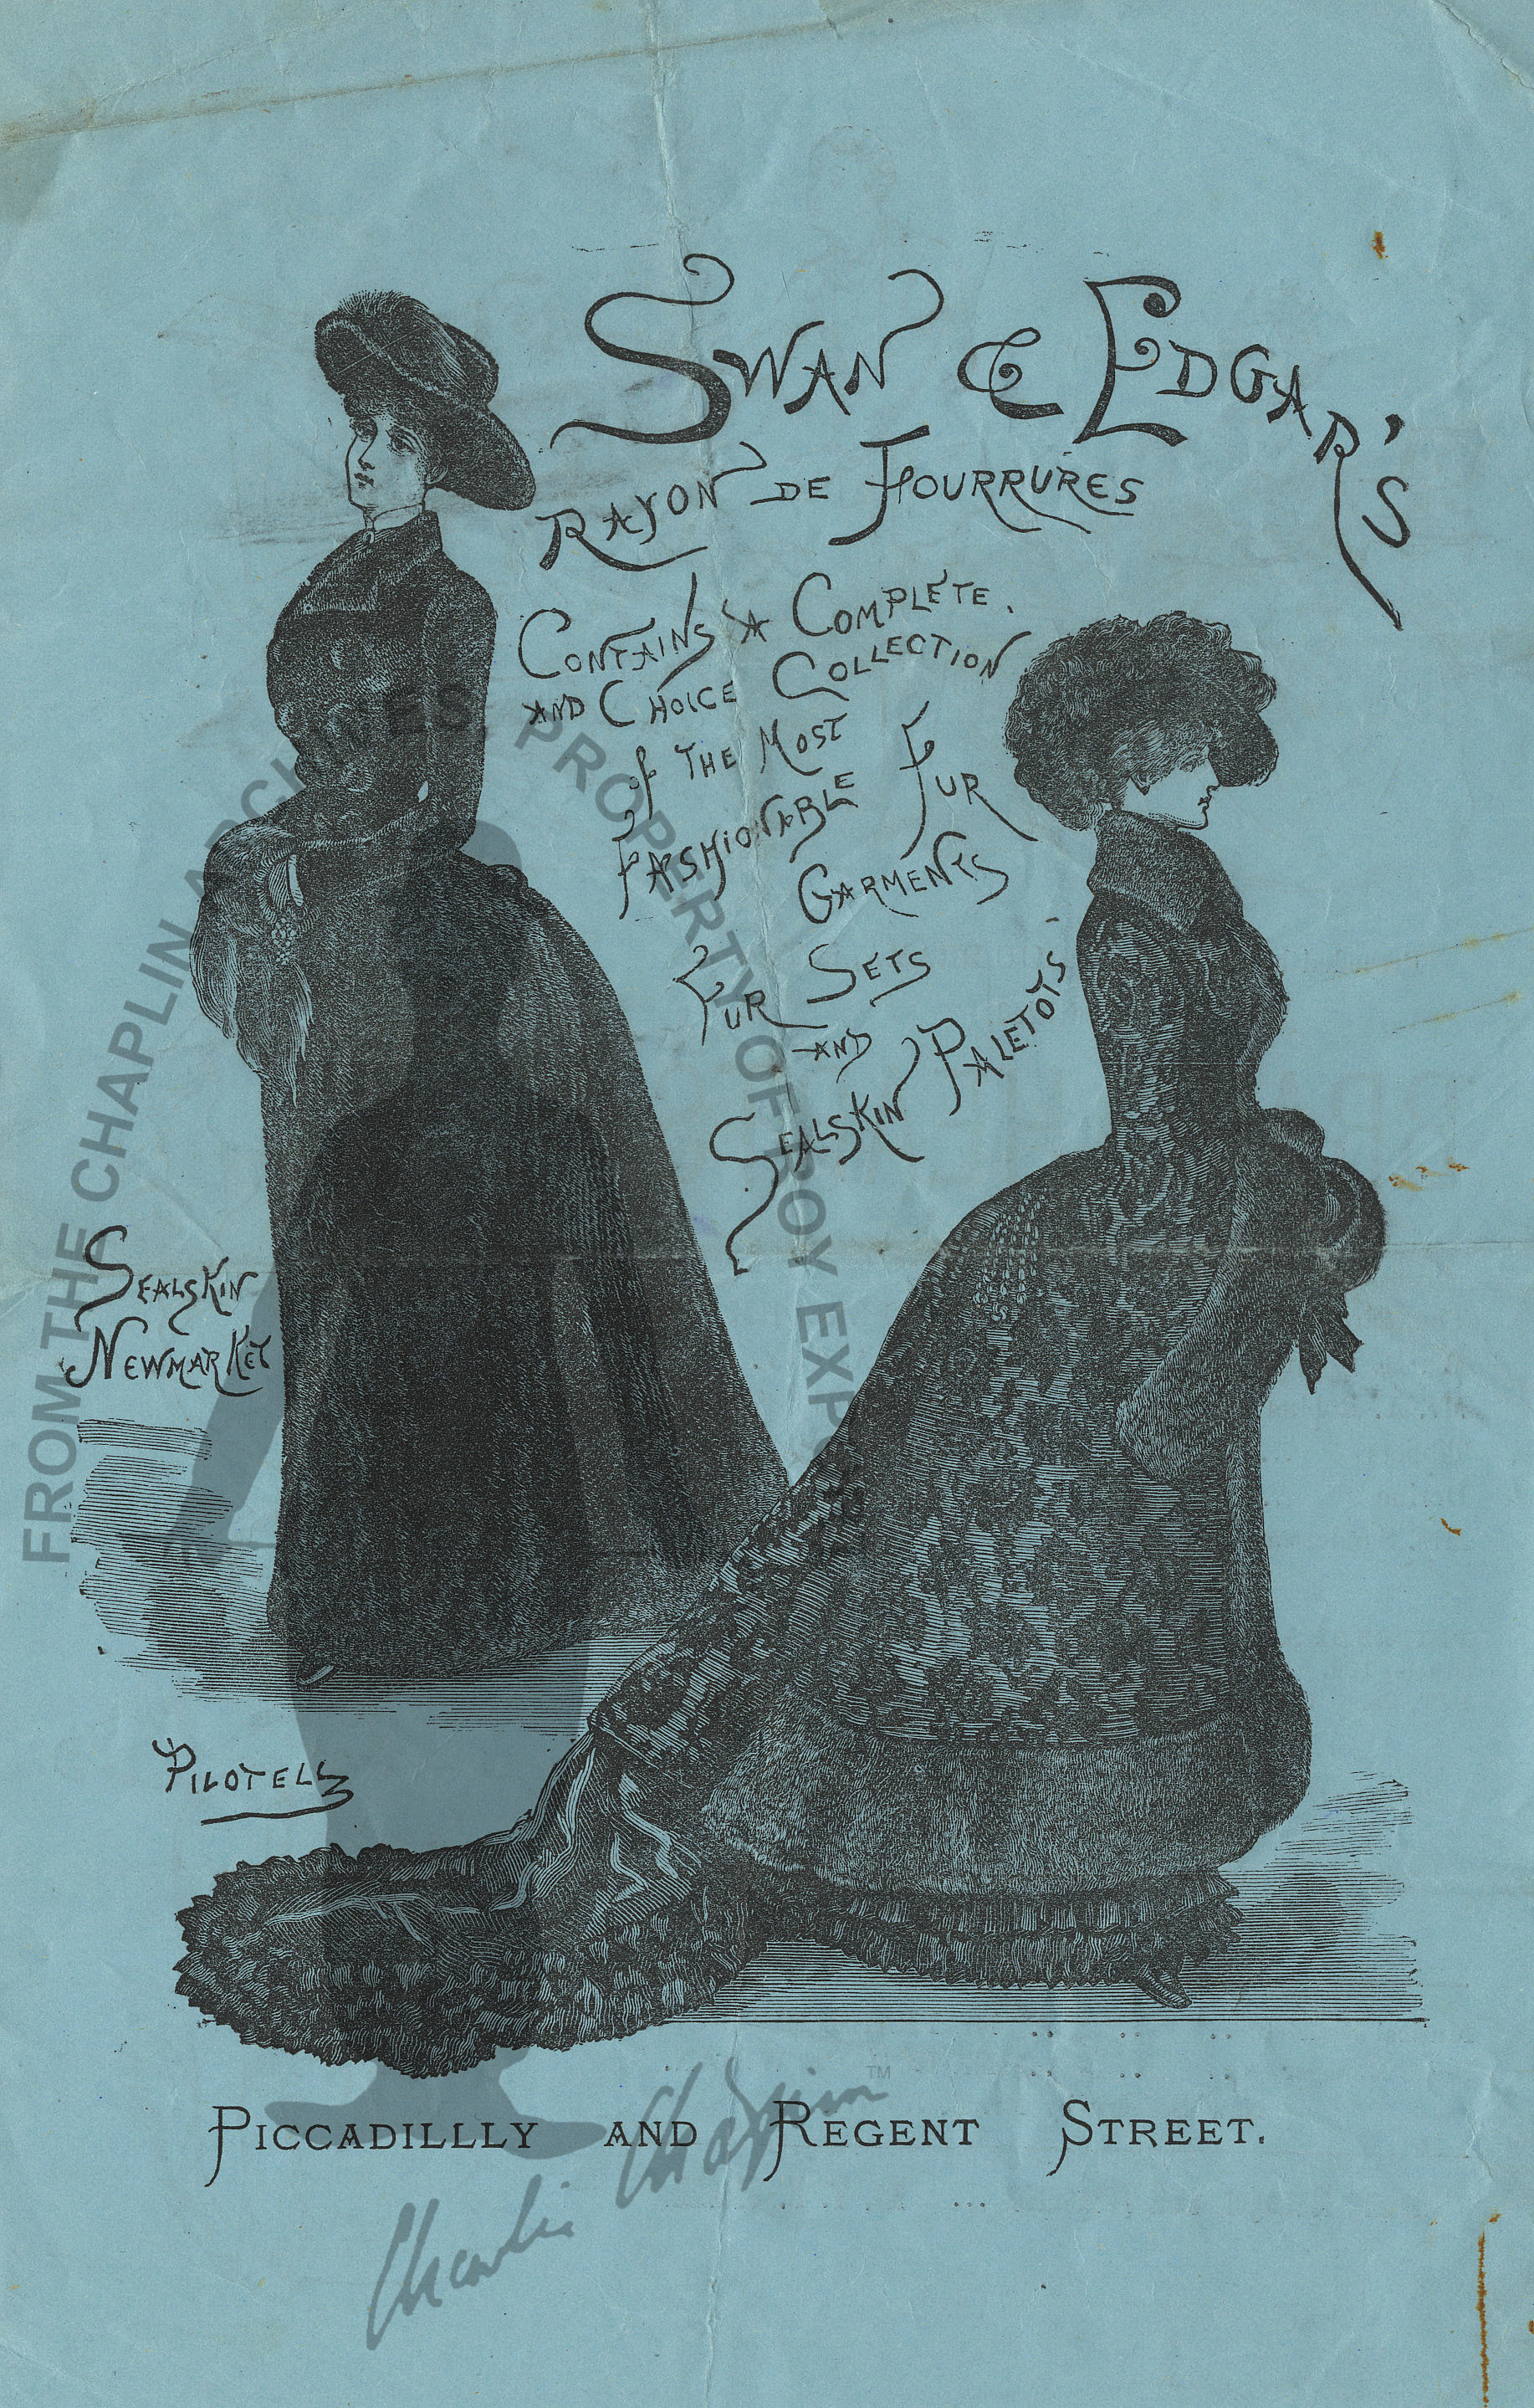 SWAN & EDGAR'S
RAYON DE FOURRURES
CONTAINS A COMPLETE.
AND CHOICE COLLECTION
of THE MOST
FASHIONABLE FUR
GARMENTS
FUR SETS
AND
SEALSKIN PALETOTS
SEALSKIN
NEWMARKET
PILOTELL
PICCADILLLY AND REGENT STREET.
FROM THE CHAPLIN ARCHIVES PROPERTY OF ROY EXPORT
Charlie Chaplin ™